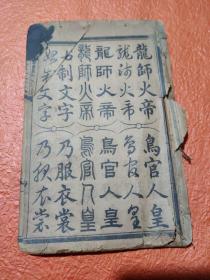 龍師火帝鳥官人皇
龍師火帝鳥官人皇
龍師火帝鳥官人皇
龍師火帝鳥官人皇
制文字乃服衣裳
制文字乃服衣裳